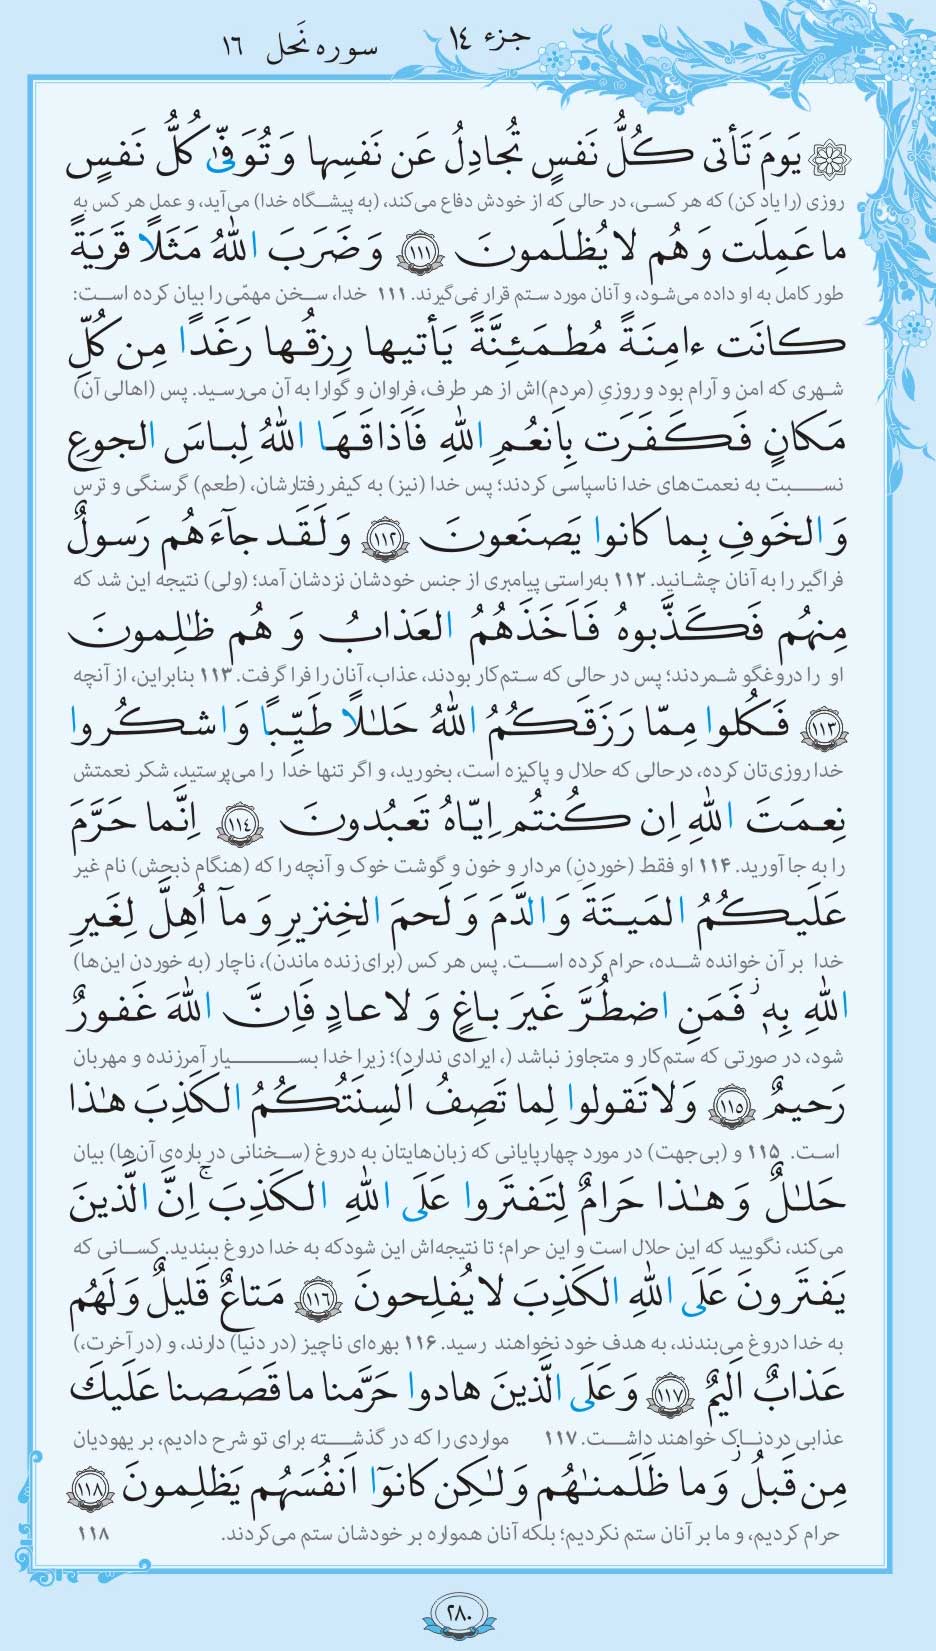 جزء ۱٤
سوره نَحل ۱٦
۞ يَومَ تَأتى كُلُّ نَفسٍ تُجادِلُ عَن نَفسِها وَ تُوَفّىٰ كُلُّ نَفسٍ
روزی (را یاد کن) که هر کسی، در حالی که از خودش دفاع می‌کند، (به پیشگاه خدا) می‌آید، و عمل هر کس به
ما عَمِلَت وَ هُم لا يُظلَمونَ ﴿۱۱۱﴾ وَ ضَرَبَ اللهُ مَثَلًا قَريَةً
طور کامل به او داده می‌شود، و آنان مورد ستم قرار نمی‌گیرند. ۱۱۱ خدا، سخن مهمّی را بیان کرده است:
كانَت ءامِنَةً مُطمَئِنَّةً يَأتيها رِزقُها رَغَدًا مِن كُلِّ
شهری که امن و آرام بود و روزیِ (مردم)اش از هر طرف، فراوان و گوارا به آن می‌رسید. پس (اهالی آن)
مَكانٍ فَكَفَرَت بِاَنعُمِ اللهِ فَاَذاقَهَا اللهُ لِباسَ الجوعِ
نسبت به نعمت‌های خدا ناسپاسی کردند؛ پس خدا (نیز) به کیفر رفتارشان، (طعم) گرسنگی و ترس
وَ الخَوفِ بِما كانوا يَصنَعونَ ﴿۱۱۲﴾ وَ لَقَد جآءَهُم رَسولٌ
فراگیر را به آنان چشانید. ۱۱۲ به‌راستی پیامبری از جنس خودشان نزدشان آمد؛ (ولی) نتیجه این شد که
مِنهُم فَكَذَّبوهُ فَاَخَذَهُمُ العَذابُ وَ هُم ظٰلِمونَ
او را دروغگو شمردند؛ پس در حالی که ستم‌کار بودند، عذاب، آنان را فرا گرفت. ۱۱۳ بنابراین، از آنچه
﴿۱۱۳﴾ فَكُلوا مِمّا رَزَقَكُمُ اللهُ حَلٰلًا طَيِّبًا وَ اشكُروا
خدا روزی‌تان کرده، درحالی که حلال و پاکیزه است، بخورید، و اگر تنها خدا را می‌پرستید، شکر نعمتش
نِعمَتَ اللهِ اِن كُنتُم اِيّاهُ تَعبُدونَ ﴿۱۱٤﴾ اِنَّما حَرَّمَ
را به جا آورید. ۱۱۴ او فقط (خوردنِ) مردار و خون و گوشت خوک و آنچه را که (هنگام ذبحش) نام غیر
عَلَيكُمُ المَيتَةَ وَ الدَّمَ وَ لَحمَ الخِنزيرِ وَ مآ اُهِلَّ لِغَيرِ
خدا بر آن خوانده شده، حرام کرده است. پس هر کس (برای زنده ماندن)، ناچار (به خوردن این‌ها)
اللهِ بِهٖ ۖ فَمَنِ اضطُرَّ غَيرَ باغٍ وَ لا عادٍ فَاِنَّ اللهَ غَفورٌ
شود، در صورتی که ستم‌کار و متجاوز نباشد (، ایرادی ندارد)؛ زیرا خدا بسیار آمرزنده و مهربان
رَحيمٌ ﴿۱۱٥﴾ وَ لا تَقولوا لِما تَصِفُ اَلسِنَتُكُمُ الكَذِبَ هٰذا
است. ۱۱۵ و (بی‌جهت) در مورد چهارپایانی که زبان‌هایتان به دروغ (سخنانی در باره‌ی آن‌ها) بیان
حَلٰلٌ وَ هٰذا حَرامٌ لِتَفتَروا عَلَى اللهِ الكَذِبَ ۚ اِنَّ الَّذينَ
می‌کند، نگویید که این حلال است و این حرام؛ تا نتیجه‌اش این شودکه به خدا دروغ ببندید. کسانی که
يَفتَرونَ عَلَى اللهِ الكَذِبَ لا يُفلِحونَ ﴿۱۱٦﴾ مَتاعٌ قَليلٌ وَ لَهُم
به خدا دروغ می‌بندند، به هدف خود نخواهند رسید. ۱۱۶ بهره‌ای ناچیز (در دنیا) دارند، و (در آخرت،)
عَذابٌ اَليمٌ ﴿۱۱۷﴾ وَ عَلَى الَّذينَ هادوا حَرَّمنا ما قَصَصنا عَلَيكَ
عذابی دردناک خواهند داشت. ۱۱۷ مواردی را که در گذشته برای تو شرح دادیم، بر یهودیان
مِن قَبلُ ۖ وَ ما ظَلَمنٰهُم وَ لٰكِن كانوٓا اَنفُسَهُم يَظلِمونَ ﴿۱۱۸﴾
حرام کردیم، و ما بر آنان ستم نکردیم؛ بلکه آنان همواره بر خودشان ستم می‌کردند. ۱۱۸
۲۸۰